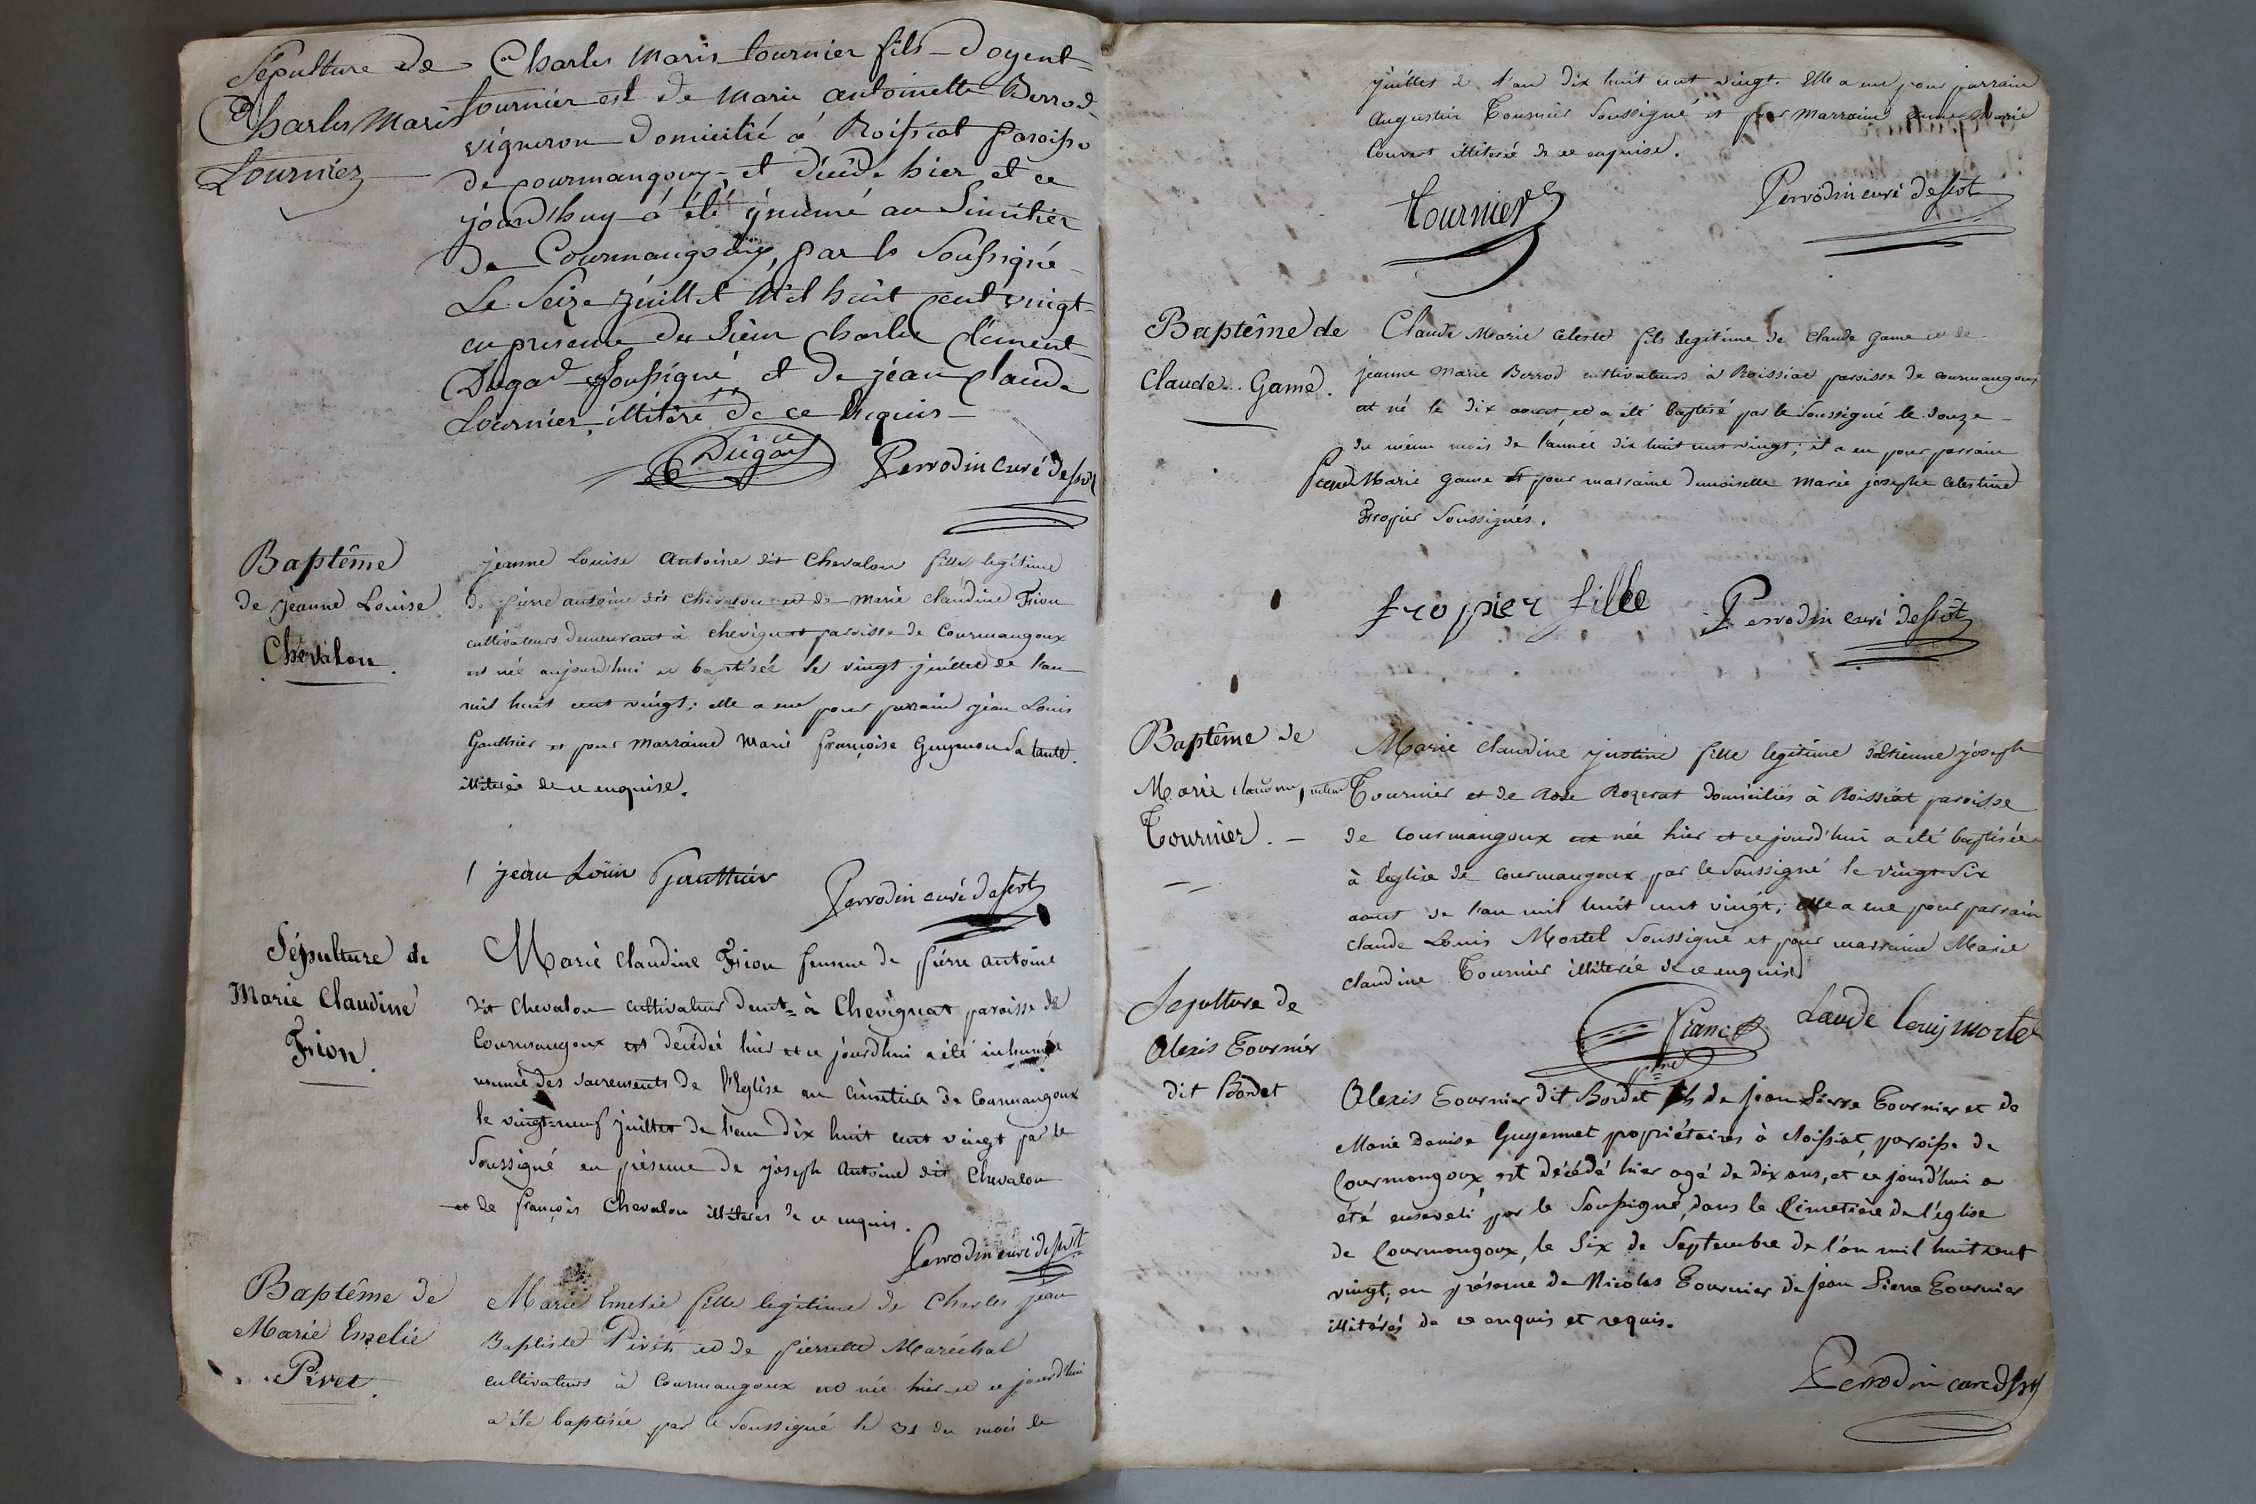 Sépulture de
Charles Marie
Tournier
Charles Marie tournier fils doyent
tournier est de Marie antoinette Berrod
vigneron domicilié à Roissiat paroisse
de courmangouy, et décédé hier et ce
jourd'huy a été ynumé au Simitier
de Courmangouy, par le Soussigné
Le Seize juillet Mil huit cent vingt
en presence du Sieur Charles Clément
Dugad Soussigné et de jean Claude
tournier, illitéré de ce Requis
Dugad Perrodin curé desst
Baptême
de jeanne Louise
Chévalon
jeanne Louise Antoine dit Chevalon fille legitime
de pierre antoine dit Chevalon et de Marie claudine Frion
cultivateurs demeurant à chevignat paroisse de Courmangoux
est née aujourd'hui et baptisée le vingt juillet de l'an
mil huit cent vingt; elle a eue pour parrain jean Louis
Gauthier et pour Marraine Marie françoise Guyenon Sa tante
illiterée de ce enquise.
jean Loüis Gauthier Perrodin curé desst
Sépulture de
Marie Claudine
Frion.
Marie Claudine Frion femme de pierre antoine
dit Chevalon cultivateur demt à Chevignat paroisse de
Courmangoux est decédée hier et ce jourd'hui a été inhumée
munie des sacrements de l'Eglise au cimetiere de Courmangoux
le vingt-neuf juillet de l'an dix huit cent vingt par le
Soussigné en présence de joseph Antoine dit Chevalon
et de françois Chevalon illiterés de ce enquis.
Perrodin curé desst
Baptême de
Marie Emelie
Pivet.
Marie Emelie fille legitime de Charles jean
Baptiste Pivet et de pierrette Maréchal
cultivateurs à Courmangoux est née hier et ce jourd'hui
a été baptisée par le Soussigné le 31 du mois de
juillet de l'an dix huit cent vingt. Elle a eue pour parrain
augustin Tournier Soussigné et pour Marraine anne Marie
Couvert illiterée de ce enquise.
Tournier Perrodin curé desst
Baptême de
Claude Game.
Claude Marie celeste fils legitime de Claude Game et de
jeanne Marie Borrod cultivateurs à Roissiat paroisse de courmangoux
est né le dix aout et a été baptisé par le Soussigné le douze
du même mois de l'année dix huit cent vingt; il a eu pour parrain
Marie game et pour marraine demoiselle Marie josephe Celestine
Fropier Soussignés.
fropier fille Perrodin curé desst
Baptême de
Marie claudine justine
Tournier.
Marie Claudine justine fille legitime d'étienne joseph
Tournier et de Rose Rozerat domiciliés à Roissiat paroisse
de Courmangoux est née hier et ce jourd'hui a été baptisée
à l'église de courmangoux par le Soussigné le vingt Six
aout de l'an mil huit cent vingt; elle a eue pour parrain
claude Louis Mortel Soussigné et pour marraine Marie
claudine Tournier illiterée de ce enquise
franc Laude louis mortel
Sepulture de
Alexis Tournier
dit Bordet
Alexis Tournier dit Bordet fils de jean Pierre Tournier et de
Marie Denise Guyennet propriétaires à Roissiat, paroisse de
Courmangoux, est décédé hier agé de dix ans, et ce jourd'hui a
été enseveli par le Soussigné, dans le Cimetière de l'église
de Courmangoux, le Six de Septembre de l'an mil huit cent
vingt, en présence de Nicolas Tournier de jean Pierre Tournier
illitérés de ce enquis et requis.
Perrodin curé desst